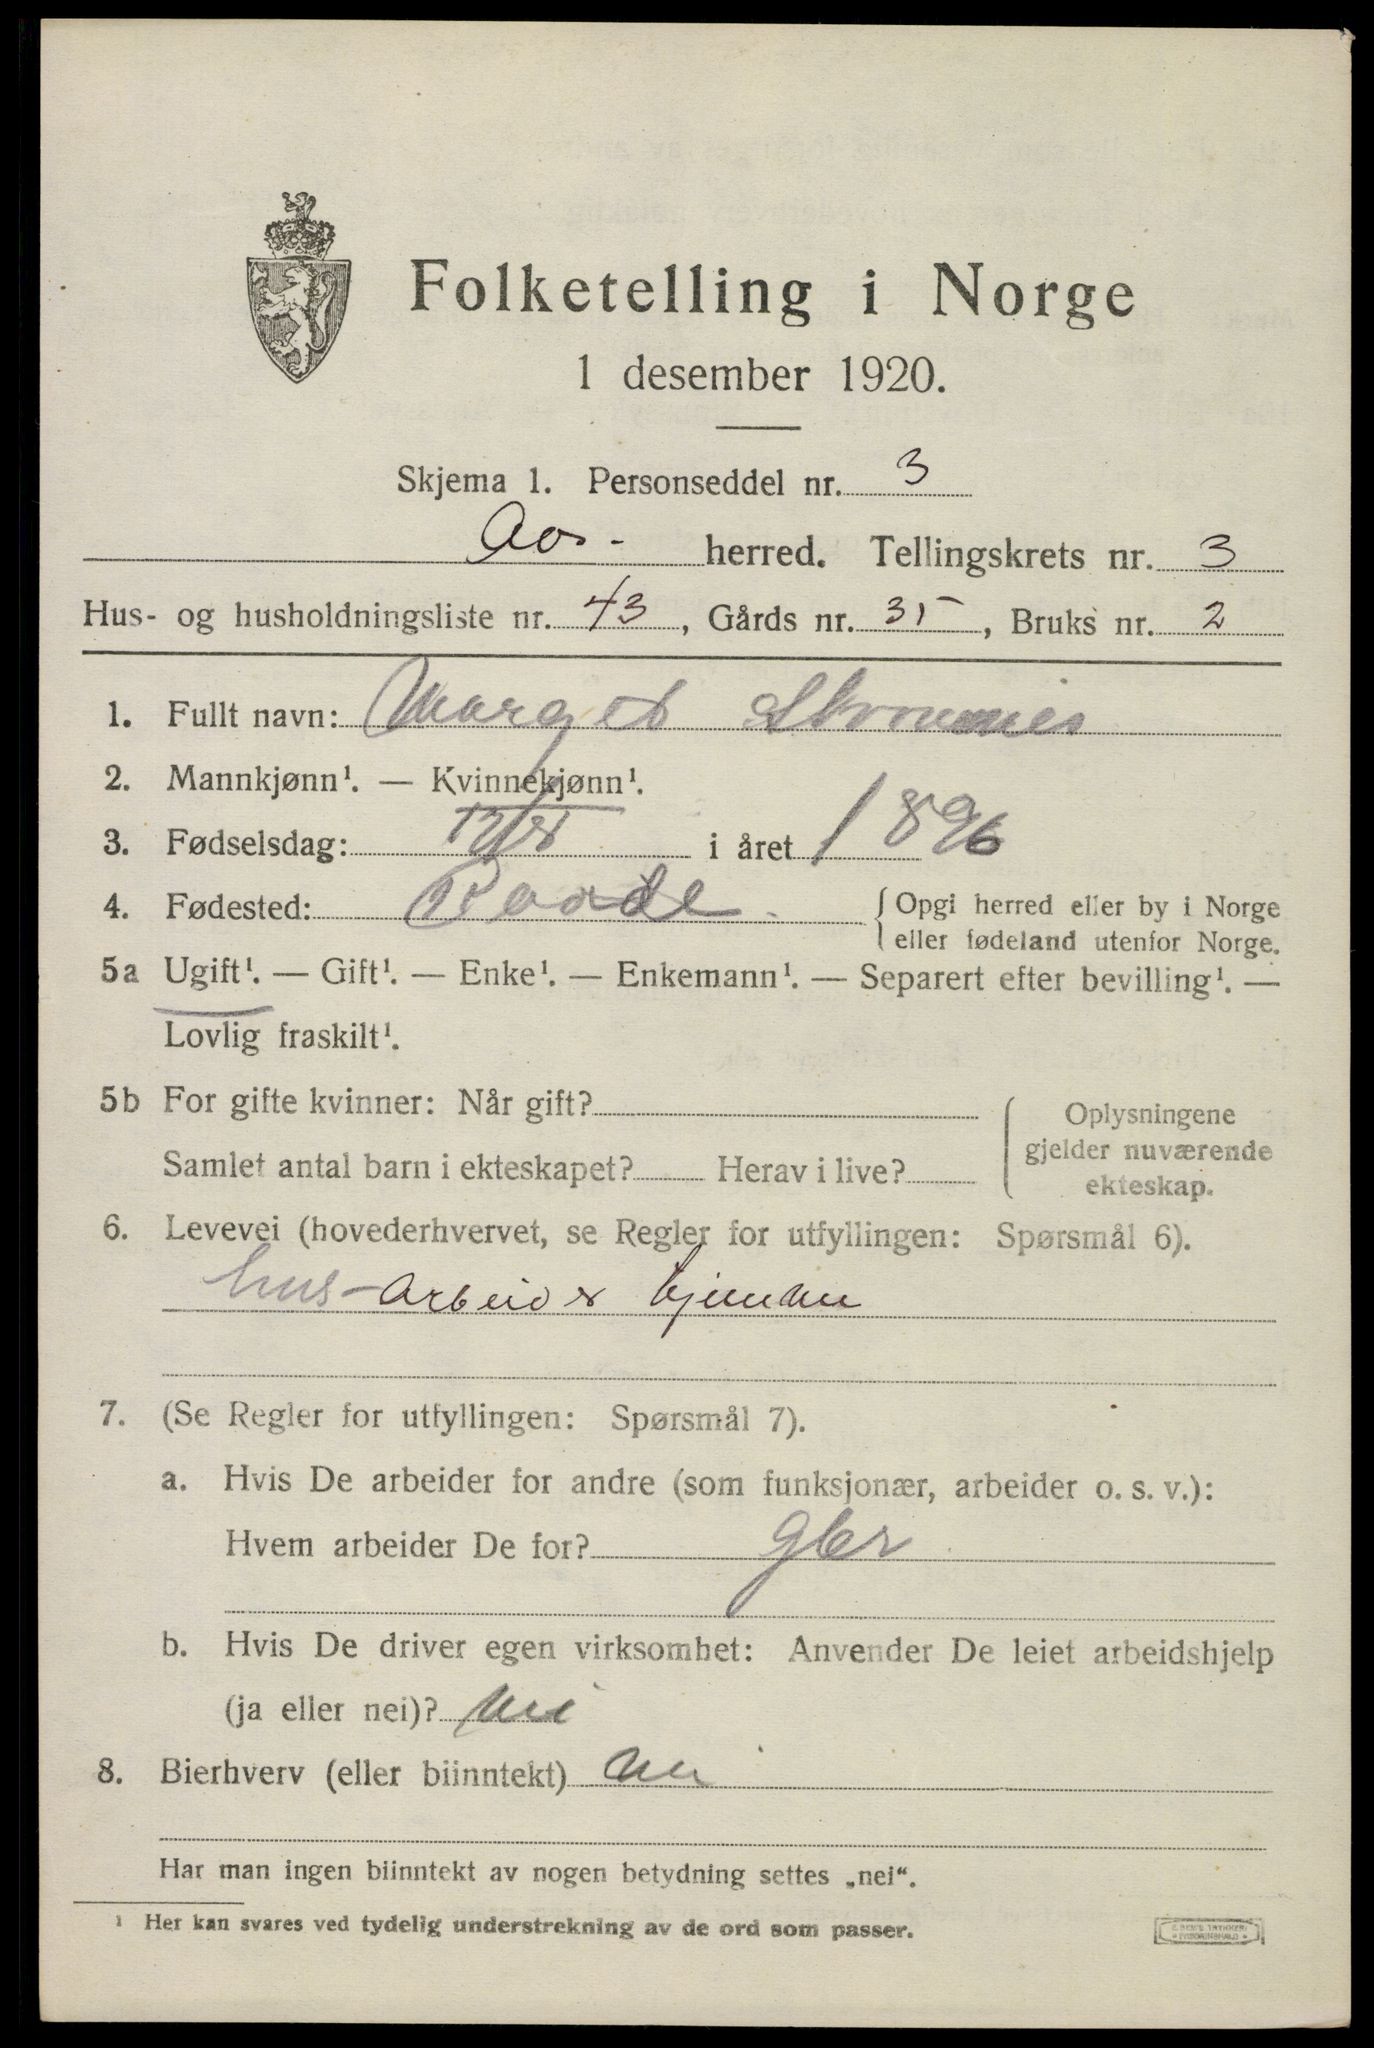 Folketelling i Norge
1 desember 1920.
Skjema 1. Personseddel nr. 3
Aas - herred. Tellingskrets nr. 3
Hus- og husholdningsliste nr. 43, Gårds nr. 35, Bruks nr. 2
1. Fullt navn: Marget
2. Mannkjønn¹. — Kvinnekjønn¹.
3. Fødselsdag: i året 1896
4. Fødested: Raade. { Opgi herred eller by i Norge
eller fødeland utenfor Norge.
5a Ugift¹. — Gift¹. — Enke¹. — Enkemann¹. — Separert efter bevilling¹. —
Lovlig fraskilt¹.
5b For gifte kvinner: Når gift?
Samlet antal barn i ekteskapet? Herav i live?
Oplysningene
gjelder nuværende
ekteskap.
6. Levevei (hovederhvervet, se Regler for utfyllingen: Spørsmål 6).
hus-arbeid
7. (Se Regler for utfyllingen: Spørsmål 7).
a. Hvis De arbeider for andre (som funksjonær, arbeider o. s. v.):
Hvem arbeider De for? gbr
b. Hvis De driver egen virksomhet: Anvender De leiet arbeidshjelp
(ja eller nei)? nei
8. Bierhverv (eller biinntekt) nei
Har man ingen biinntekt av nogen betydning settes „nei“.
¹ Her kan svares ved tydelig understrekning av de ord som passer.